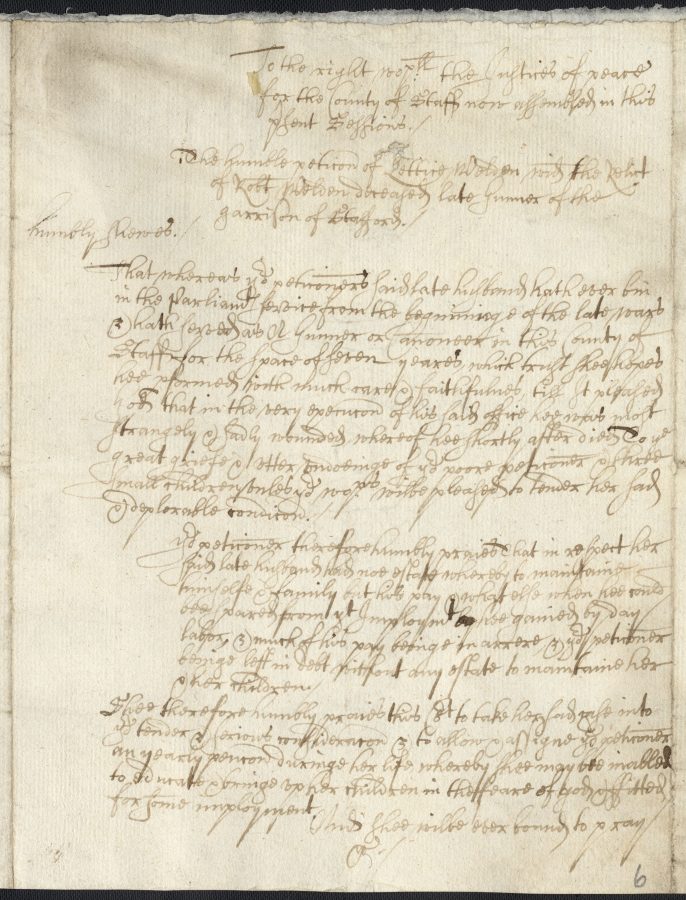 To the right wop.ll the Justices of peace
for the County of Staff now assembled in this
pſent Sessions. /
The humble peticon of Lettice Welden wid the Relict
of Robt Welden deceased late Gunner of the
garrison of Stafford. /
humbly shewes. /
That whereas yor petitioners said late husband hath ever bin
in the Parliamt service from the beginning e of the late wars
& hath served as A Gunner or Canoneer in this County of
Staff for the space of seven yeares, which trust shee hopes
hee pformed with much care & faithfulnes, till It pleased
god that in the very execucon of his said office hee was most
strangely & sadly wounded whereof hee shortly after died To ye
great griefe & utter undoeinge of yor poore peticoner & three
small children unles yor wops wilbe pleased to tender her sad
& deplorable condicon. /
yor peticoner therefore humbly praies That in respect her
said late husband had noe estate whereby to maintaine
himselfe & family but his pay & what else when hee could
bee spared from yt Imploymt hee gained by day
labor, & much of his pay beinge in arrere & yor peticoner
beinge left in debt without any estate to maintaine her
& her children. /
Shee therefore humbly praies this Ct to take her sad case into
yor tender & serious consideracon & to allow & assigne yor peticoner
an yearly pencon duringe her life whereby shee may bee inabled
to educate & bringe up her children in the feare of god & fitted
for some imployment.
And shee wilbe ever bound to pray
&c. /
6